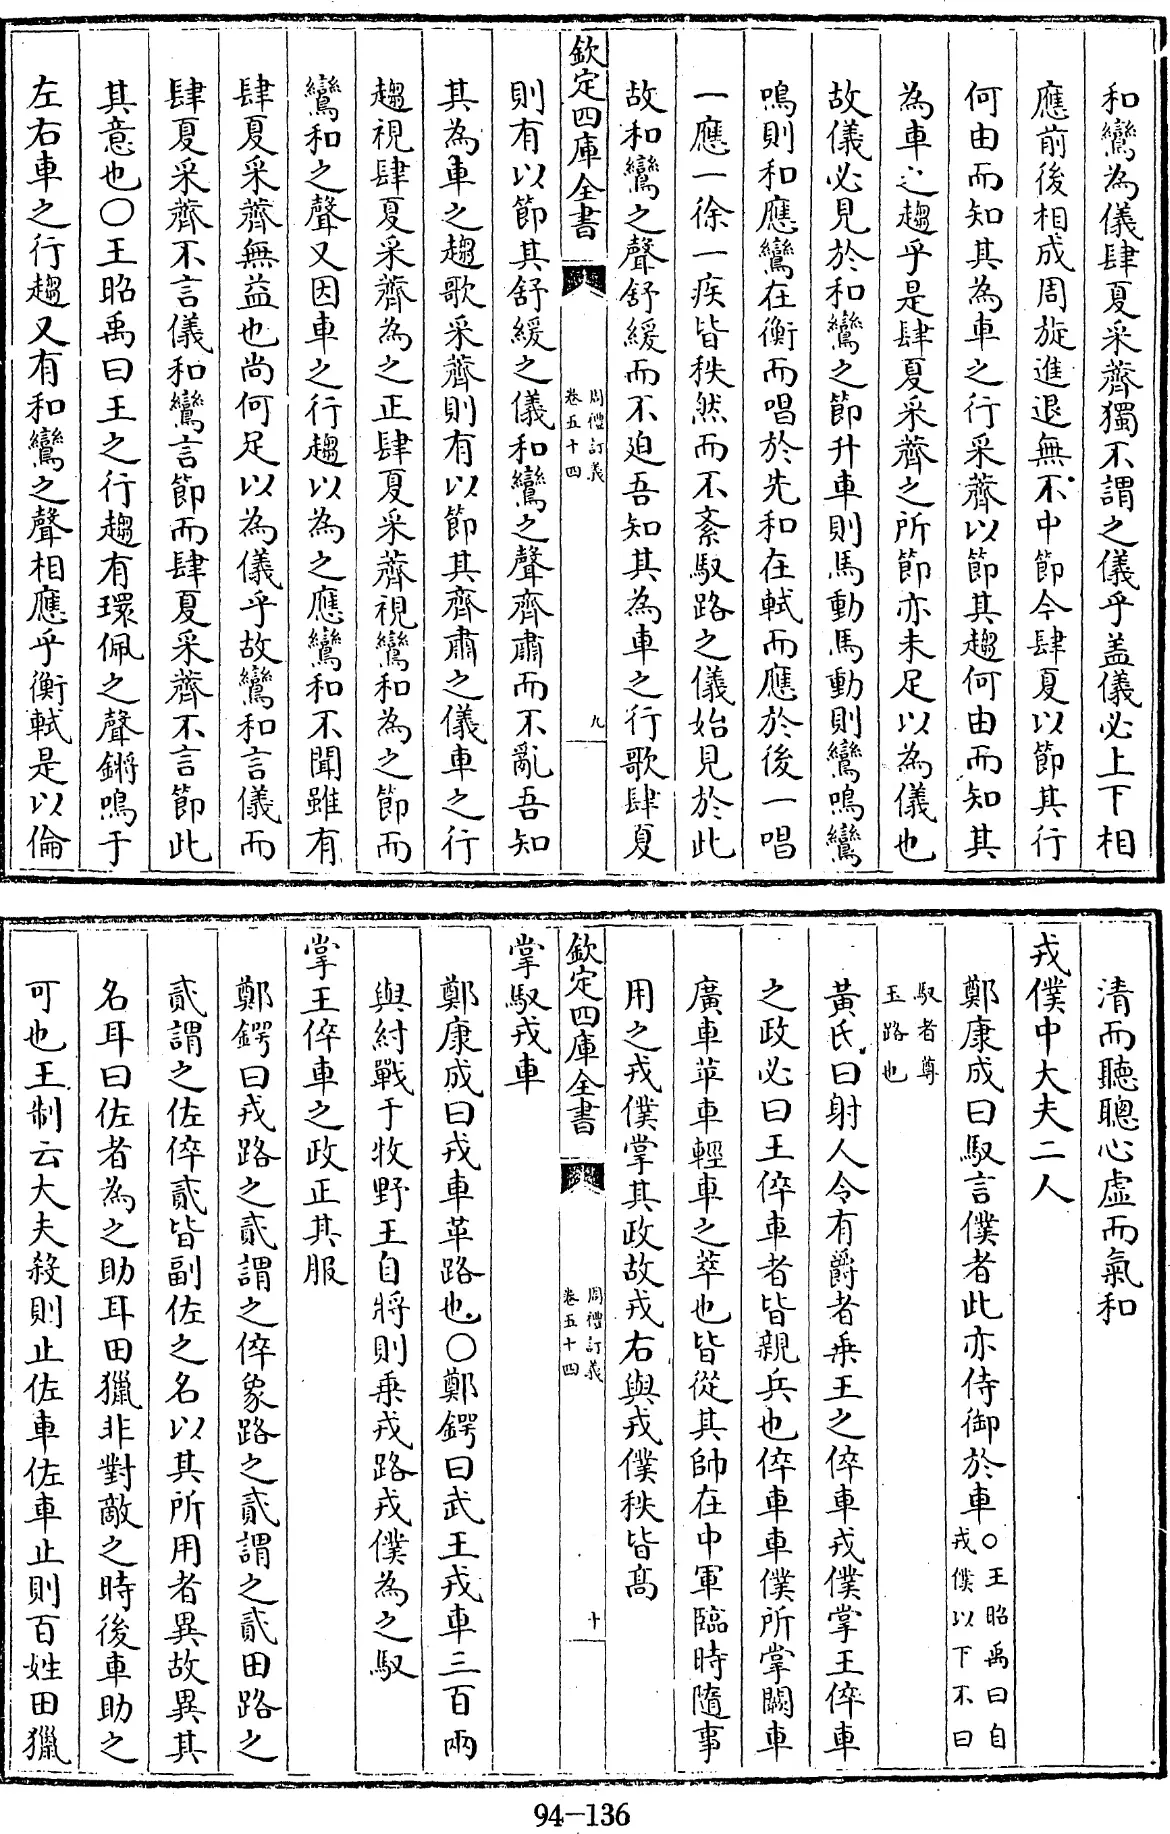 和鸞為儀肆夏采薺獨不謂之儀乎盖儀必上下相
應前後相成周旋進退無不中節今肆夏以節其行
何由而知其為車之行采薺以節其趨何由而知其
為車之趨乎是肆夏采薺之所節亦未足以為儀也
故儀必見於和鸞之節升車則馬動馬動則鸞鳴鸞
鳴則和應鸞在衡而唱於先和在軾而應於後一唱
一應一徐一疾皆秩然而不紊馭路之儀始見於此
故和鸞之聲舒緩而不迫吾知其為車之行歌肆夏
欽定四庫全書
周禮訂義
卷五十四
九
則有以節其舒緩之儀和鸞之聲齊肅而不亂吾知
其為車之趨歌采薺則有以節其齊肅之儀車之行
趨視肆夏采薺為之正肆夏采薺視鸞和為之節而
鸞和之聲又因車之行趨以為之應鸞和不聞雖有
肆夏采薺無益也尚何足以為儀乎故鸞和言儀而
肆夏采薺不言儀和鸞言節而肆夏采薺不言節此
其意也○王昭禹曰王之行趨有環佩之聲鏘鳴于
左右車之行趨又有和鸞之聲相應乎衡軾是以倫
清而聽聰心虛而氣和
戎僕中大夫二人
鄭康成曰馭言僕者此亦侍御於車○王昭禹曰自
戎僕以下不曰
馭者尊
玉路也
黃氏曰射人令有爵者乗王之倅車戎僕掌王倅車
之政必曰王倅車者皆親兵也倅車車僕所掌闕車
廣車苹車輕車之萃也皆從其帥在中軍臨時隨事
用之戎僕掌其政故戎右與戎僕秩皆髙
欽定四庫全書
周禮訂義
卷五十四
十
掌馭戎車
鄭康成曰戎車革路也○鄭鍔曰武王戎車三百兩
與紂戰于牧野王自將則乗戎路戎僕為之馭
掌王倅車之政正其服
鄭鍔曰戎路之貳謂之倅象路之貳謂之貳田路之
貳謂之佐倅貳皆副佐之名以其所用者異故異其
名耳曰佐者為之助耳田獵非對敵之時後車助之
可也王制云大夫殺則止佐車佐車止則百姓田獵
94-136